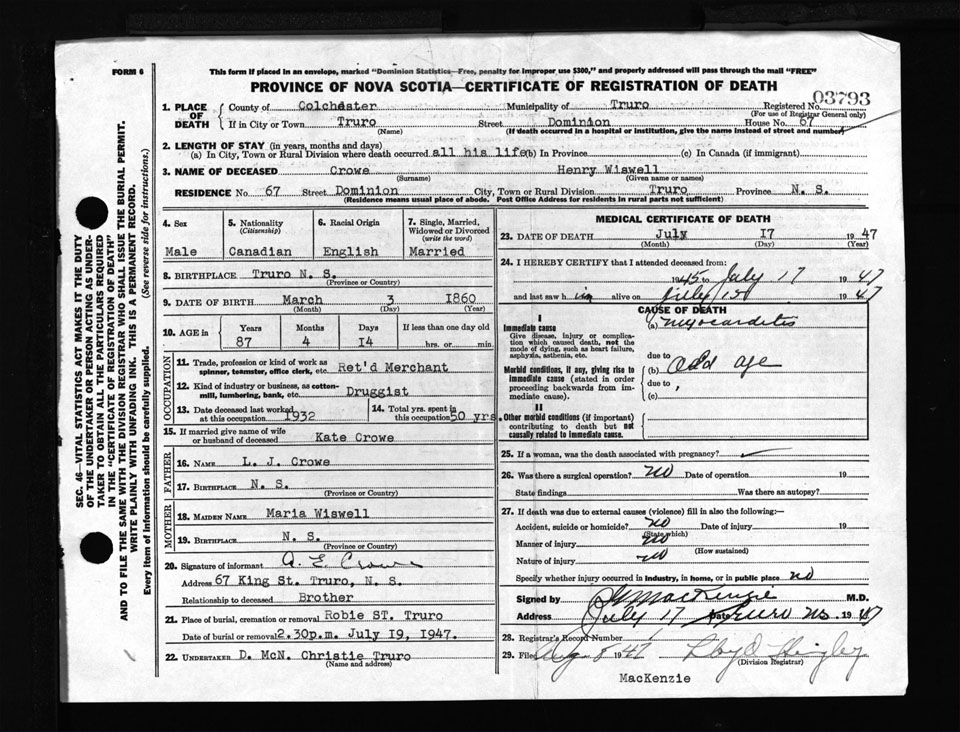 FORM 6
This form if placed in an envelope, marked "Dominion Statistics—Free, penalty for improper use $300," and properly addressed will pass through the mail "FREE"
PROVINCE OF NOVA SCOTIA—CERTIFICATE OF REGISTRATION OF DEATH
1. PLACE OF DEATH County of Colchester Municipality of Truro Registered No. 03793
(For use of Registrar General only)
If in City or Town Truro Street Dominion House No. 67
(Name) (If death occurred in a hospital or institution, give the name instead of street and number)
2. LENGTH OF STAY (in years, months and days)
(a) In City, Town or Rural Division where death occurred all his life (b) In Province (c) In Canada (if immigrant)
3. NAME OF DECEASED Crowe Henry Wiswell
(Surname) (Given name or names)
RESIDENCE No. 67 Street Dominion City, Town or Rural Division Truro Province N. S.
(Residence means usual place of abode. Post Office Address for residents in rural parts not sufficient)
SEC. 46—VITAL STATISTICS ACT MAKES IT THE DUTY
OF THE UNDERTAKER OR PERSON ACTING AS UNDER-
TAKER TO OBTAIN ALL THE PARTICULARS REQUIRED
IN THE "CERTIFICATE OF REGISTRATION OF DEATH"
AND TO FILE THE SAME WITH THE DIVISION REGISTRAR WHO SHALL ISSUE THE BURIAL PERMIT.
WRITE PLAINLY WITH UNFADING INK. THIS IS A PERMANENT RECORD.
Every item of information should be carefully supplied. (See reverse side for instructions.)
4. Sex
Male
5. Nationality
(Citizenship)
Canadian
6. Racial Origin
English
7. Single, Married,
Widowed or Divorced
(write the word)
Married
8. BIRTHPLACE Truro N. S.
(Province or Country)
9. DATE OF BIRTH March 3 1860
(Month) (Day) (Year)
10. AGE in Years Months Days If less than one day old
87 4 14 hrs. or min.
OCCUPATION
11. Trade, profession or kind of work as
spinner, teamster, office clerk, etc. Ret'd Merchant
12. Kind of industry or business, as cotton-
mill, lumbering, bank, etc. Druggist
13. Date deceased last worked
at this occupation 1932
14. Total yrs. spent in
this occupation 50 yrs.
15. If married give name of wife
or husband of deceased Kate Crowe
FATHER
16. NAME L. J. Crowe
17. BIRTHPLACE N. S.
(Province or Country)
MOTHER
18. MAIDEN NAME Maria Wiswell
19. BIRTHPLACE N. S.
(Province or Country)
20. Signature of informant A. E. Crowe
Address 67 King St. Truro, N. S.
Relationship to deceased Brother
21. Place of burial, cremation or removal Robie ST. Truro
Date of burial or removal 2.30p.m. July 19, 1947.
22. UNDERTAKER D. McN. Christie Truro
(Name and address)
MEDICAL CERTIFICATE OF DEATH
23. DATE OF DEATH July 17 1947
(Month) (Day) (Year)
24. I HEREBY CERTIFY that I attended deceased from:
1945 to July 17 1947
and last saw him alive on July 1947
CAUSE OF DEATH
I
Immediate cause
Give disease, injury or complica-
tion which caused death, not the
mode of dying, such as heart failure,
asphyxia, asthenia, etc.
(a) myocarditis
due to
Morbid conditions, if any, giving rise to
immediate cause (stated in order
proceeding backwards from im-
mediate cause).
(b) Old age
due to
(c)
II
Other morbid conditions (if important)
contributing to death but not
causally related to immediate cause.
25. If a woman, was the death associated with pregnancy?
26. Was there a surgical operation? no Date of operation 19
State findings Was there an autopsy?
27. If death was due to external causes (violence) fill in also the following:—
Accident, suicide or homicide? no Date of injury 19
(State which)
Manner of injury no
(How sustained)
Nature of injury no
Specify whether injury occurred in industry, in home, or in public place no
Signed by MacKenzie M.D.
Address July 17 Date Truro NS. 1947
28. Registrar's Record Number
29. Filed Aug 8 1947 Lloyd
(Division Registrar)
MacKenzie